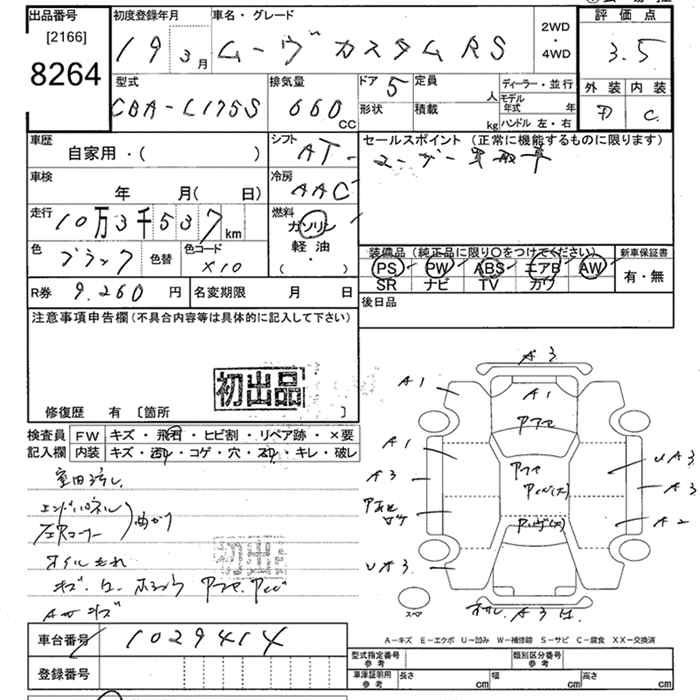 出品番号 初度登録年月 車名・グレード 評価点
[2166]
8264
19 3月 ムーヴ カスタム RS 2WD・4WD 3.5
型式 排気量 ドア 5 定員 人 ディーラー・並行 外装 内装
CBA-L175S 660 CC 形状 積載 kg モデル年式 年 C
ハンドル 左・右
車歴 シフト セールスポイント (正常に機能するものに限ります)
自家用・( ) AT ユーザー買取車
車検 冷房
年 月( 日) AAC
走行 燃料
10万3千537km ガソリン
軽油
( ・ )
色 ブラック 色替 色コード X10
装備品(純正品に限り○をつけてください) 新車保証書
PS PW ABS エアB AW 有・無
SR ナビ TV カワ
R券 9.260 円 名変期限 月 日 後日品
注意事項申告欄(不具合内容等は具体的に記入して下さい)
初出品
修復歴 有 [箇所 ]
検査員 FW キズ・飛石・ヒビ割・リペア跡・×要
記入欄 内装 キズ・汚れ・コゲ・穴・スレ・キレ・破レ
エンドパネル
曲がり
オイルもれ
初出品
A3
A1
A1
A1
A3
UA3
UA3
A3
A2
A3
スペア
A-キズ E-エクボ U-凹み W-補修跡 S-サビ C-腐食 XX-交換済
車台番号 1029414
型式指定番号 参考 類別区分番号 参考
登録番号 車庫証明用 参考 長さ cm 幅 cm 高さ cm